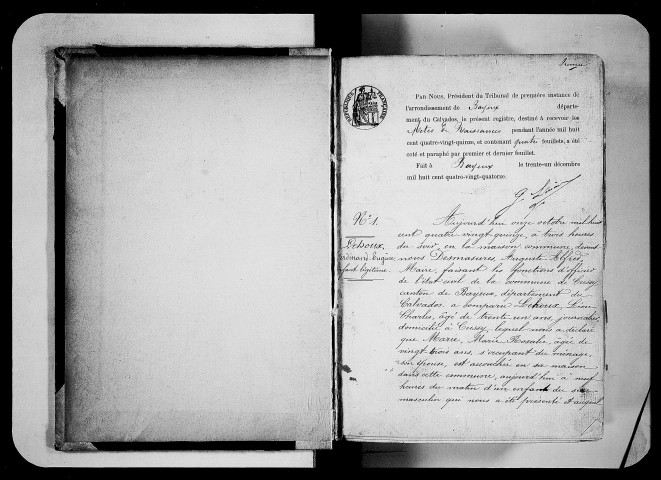 Premier
RÉPUBLIQUE FRANÇAISE
PAR NOUS, Président du Tribunal de première instance de
l'arrondissement de Bayeux départe-
ment du Calvados, le présent registre, destiné à recevoir les
Actes de Naissances pendant l'année mil huit
cent quatre-vingt-quinze, et contenant quatre feuillets, a été
coté et paraphé par premier et dernier feuillet.
Fait à Bayeux le trente-un décembre
mil huit cent quatre-vingt-quatorze.
N° 1.
Lehoux,
Ferdinand Eugène
enfant légitime
Aujourd'hui onze octobre mil huit
cent quatre vingt-quinze, à trois heures
du soir, en la maison commune, devant
nous Desmasures, Auguste Alfred
Maire, faisant les fonctions d'officier
de l'état civil de la commune de Cussy
canton de Bayeux, département du
Calvados a comparu Lehoux, Léon
Charles, âgé de trente un ans, journalier,
domicilié à Cussy, lequel nous a déclaré
que Marie, Marie Rosalie, âgée de
vingt trois ans, s'occupant du ménage,
son épouse, est accouchée en sa maison
dans cette commune, aujourd'hui à neuf
heures du matin d'un enfant du sexe
masculin qui nous a été présenté et auquel